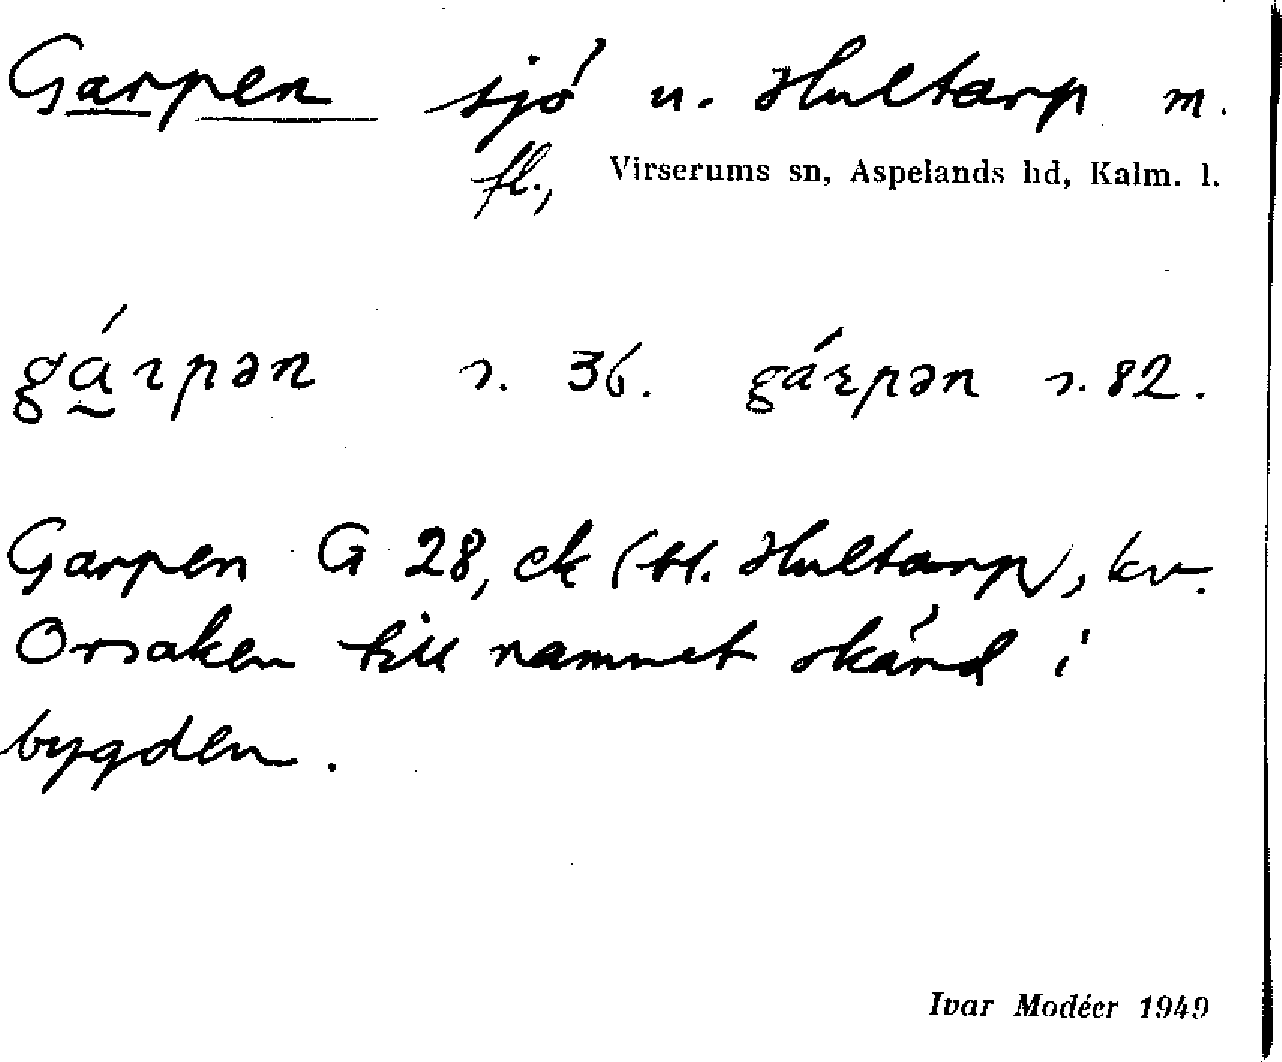 Garpen sjö u. Hultarp m.
fl., Virserums sn, Aspelands hd, Kalm. l.
gárpən s. 36. gárpən s. 82.
Garpen G 28, ek (bl. Hultarp), kv.
Orsaken till namnet okänd i
bygden.
Ivar Modéer 1949